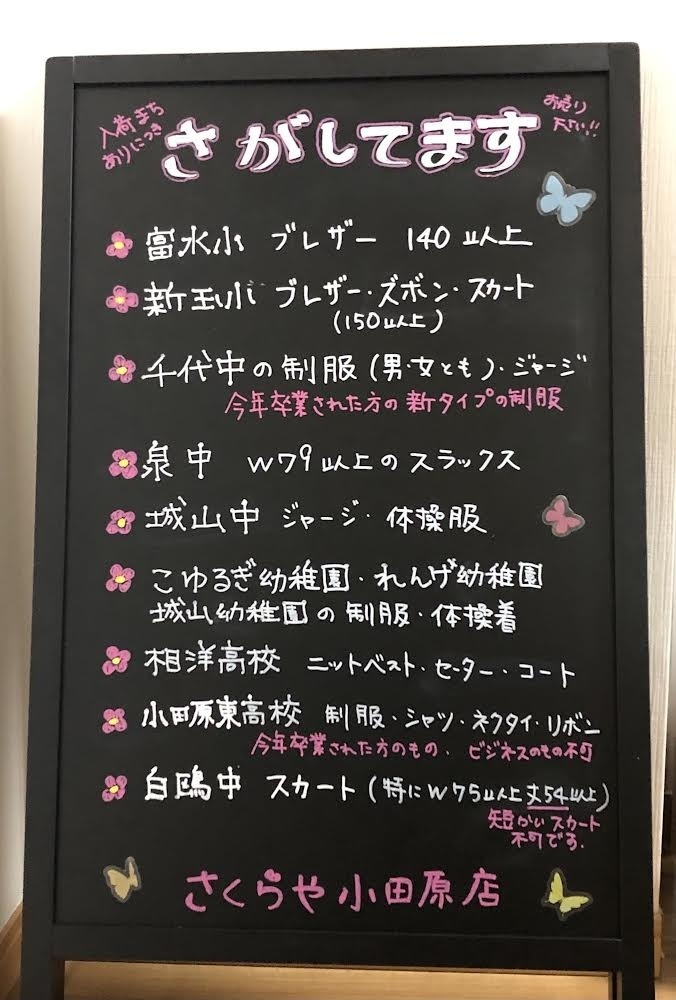 入荷まち
ありにつき
さがしてます
お売り
下さい!!
富水小 ブレザー 140以上
新玉小 ブレザー・ズボン・スカート
(150以上)
千代中の制服(男・女とも)・ジャージ
今年卒業された方の新タイプの制服
泉中 W79以上のスラックス
城山中 ジャージ・体操服
こゆるぎ幼稚園・れんげ幼稚園
城山幼稚園の制服・体操着
相洋高校 ニットベスト・セーター・コート
小田原東高校 制服・シャツ・ネクタイ・リボン
今年卒業された方のもの、ビジネスのもの不可
白鴎中 スカート(特にW75以上丈54以上)
短かいスカート
不可です.
さくらや小田原店